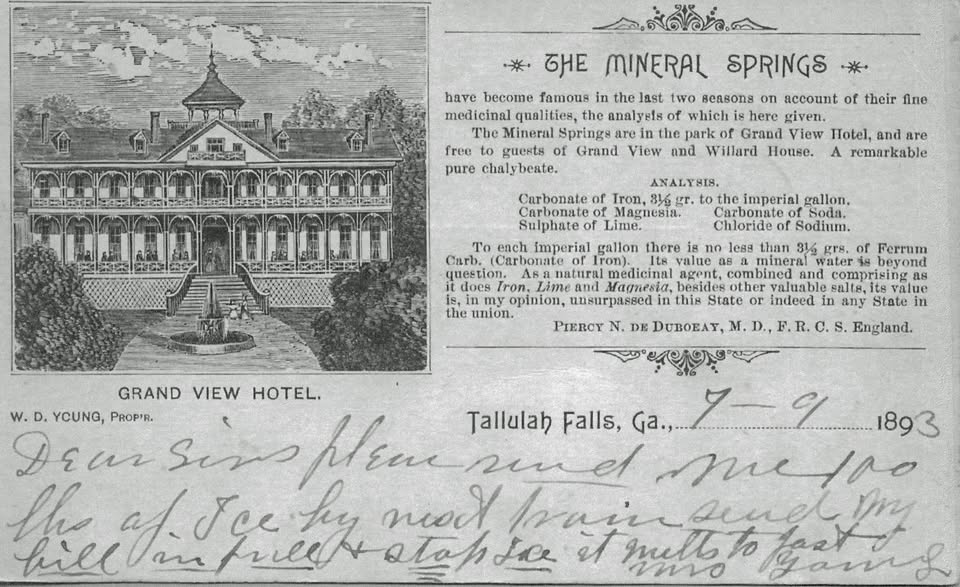 THE MINERAL SPRINGS
have become famous in the last two seasons on account of their fine
medicinal qualities, the analysis of which is here given.
The Mineral Springs are in the park of Grand View Hotel, and are
free to guests of Grand View and Willard House. A remarkable
pure chalybeate.
ANALYSIS.
Carbonate of Iron, 3½ gr. to the imperial gallon.
Carbonate of Magnesia. Carbonate of Soda.
Sulphate of Lime. Chloride of Sodium.
To each imperial gallon there is no less than 3½ grs. of Ferrum
Carb. (Carbonate of Iron). Its value as a mineral water is beyond
question. As a natural medicinal agent, combined and comprising as
it does Iron, Lime and Magnesia, besides other valuable salts, its value
is, in my opinion, unsurpassed in this State or indeed in any State in
the union.
PIERCY N. DE DUBOEAY, M. D., F. R. C. S. England.
GRAND VIEW HOTEL.
W. D. YOUNG, PROP'R.
Tallulah Falls, Ga., 7-9 1893
Dear Sirs please send me 100
lbs of Ice by next train send my
bill in full & stop Ice it melts to fast
Mrs Young